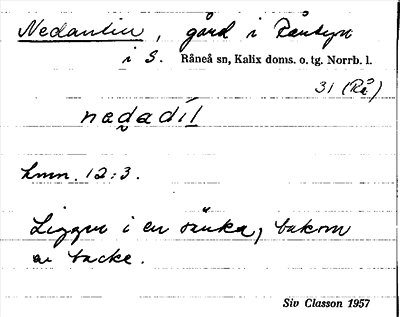 Nedantill, gård i Råntyn
i S. Råneå sn, Kalix doms. o. tg. Norrb. l.
31 (Rå)
nadadíl
Lmn. 12:3.
Ligger i en sänka, bakom
en backe.
Siv Classon 1957